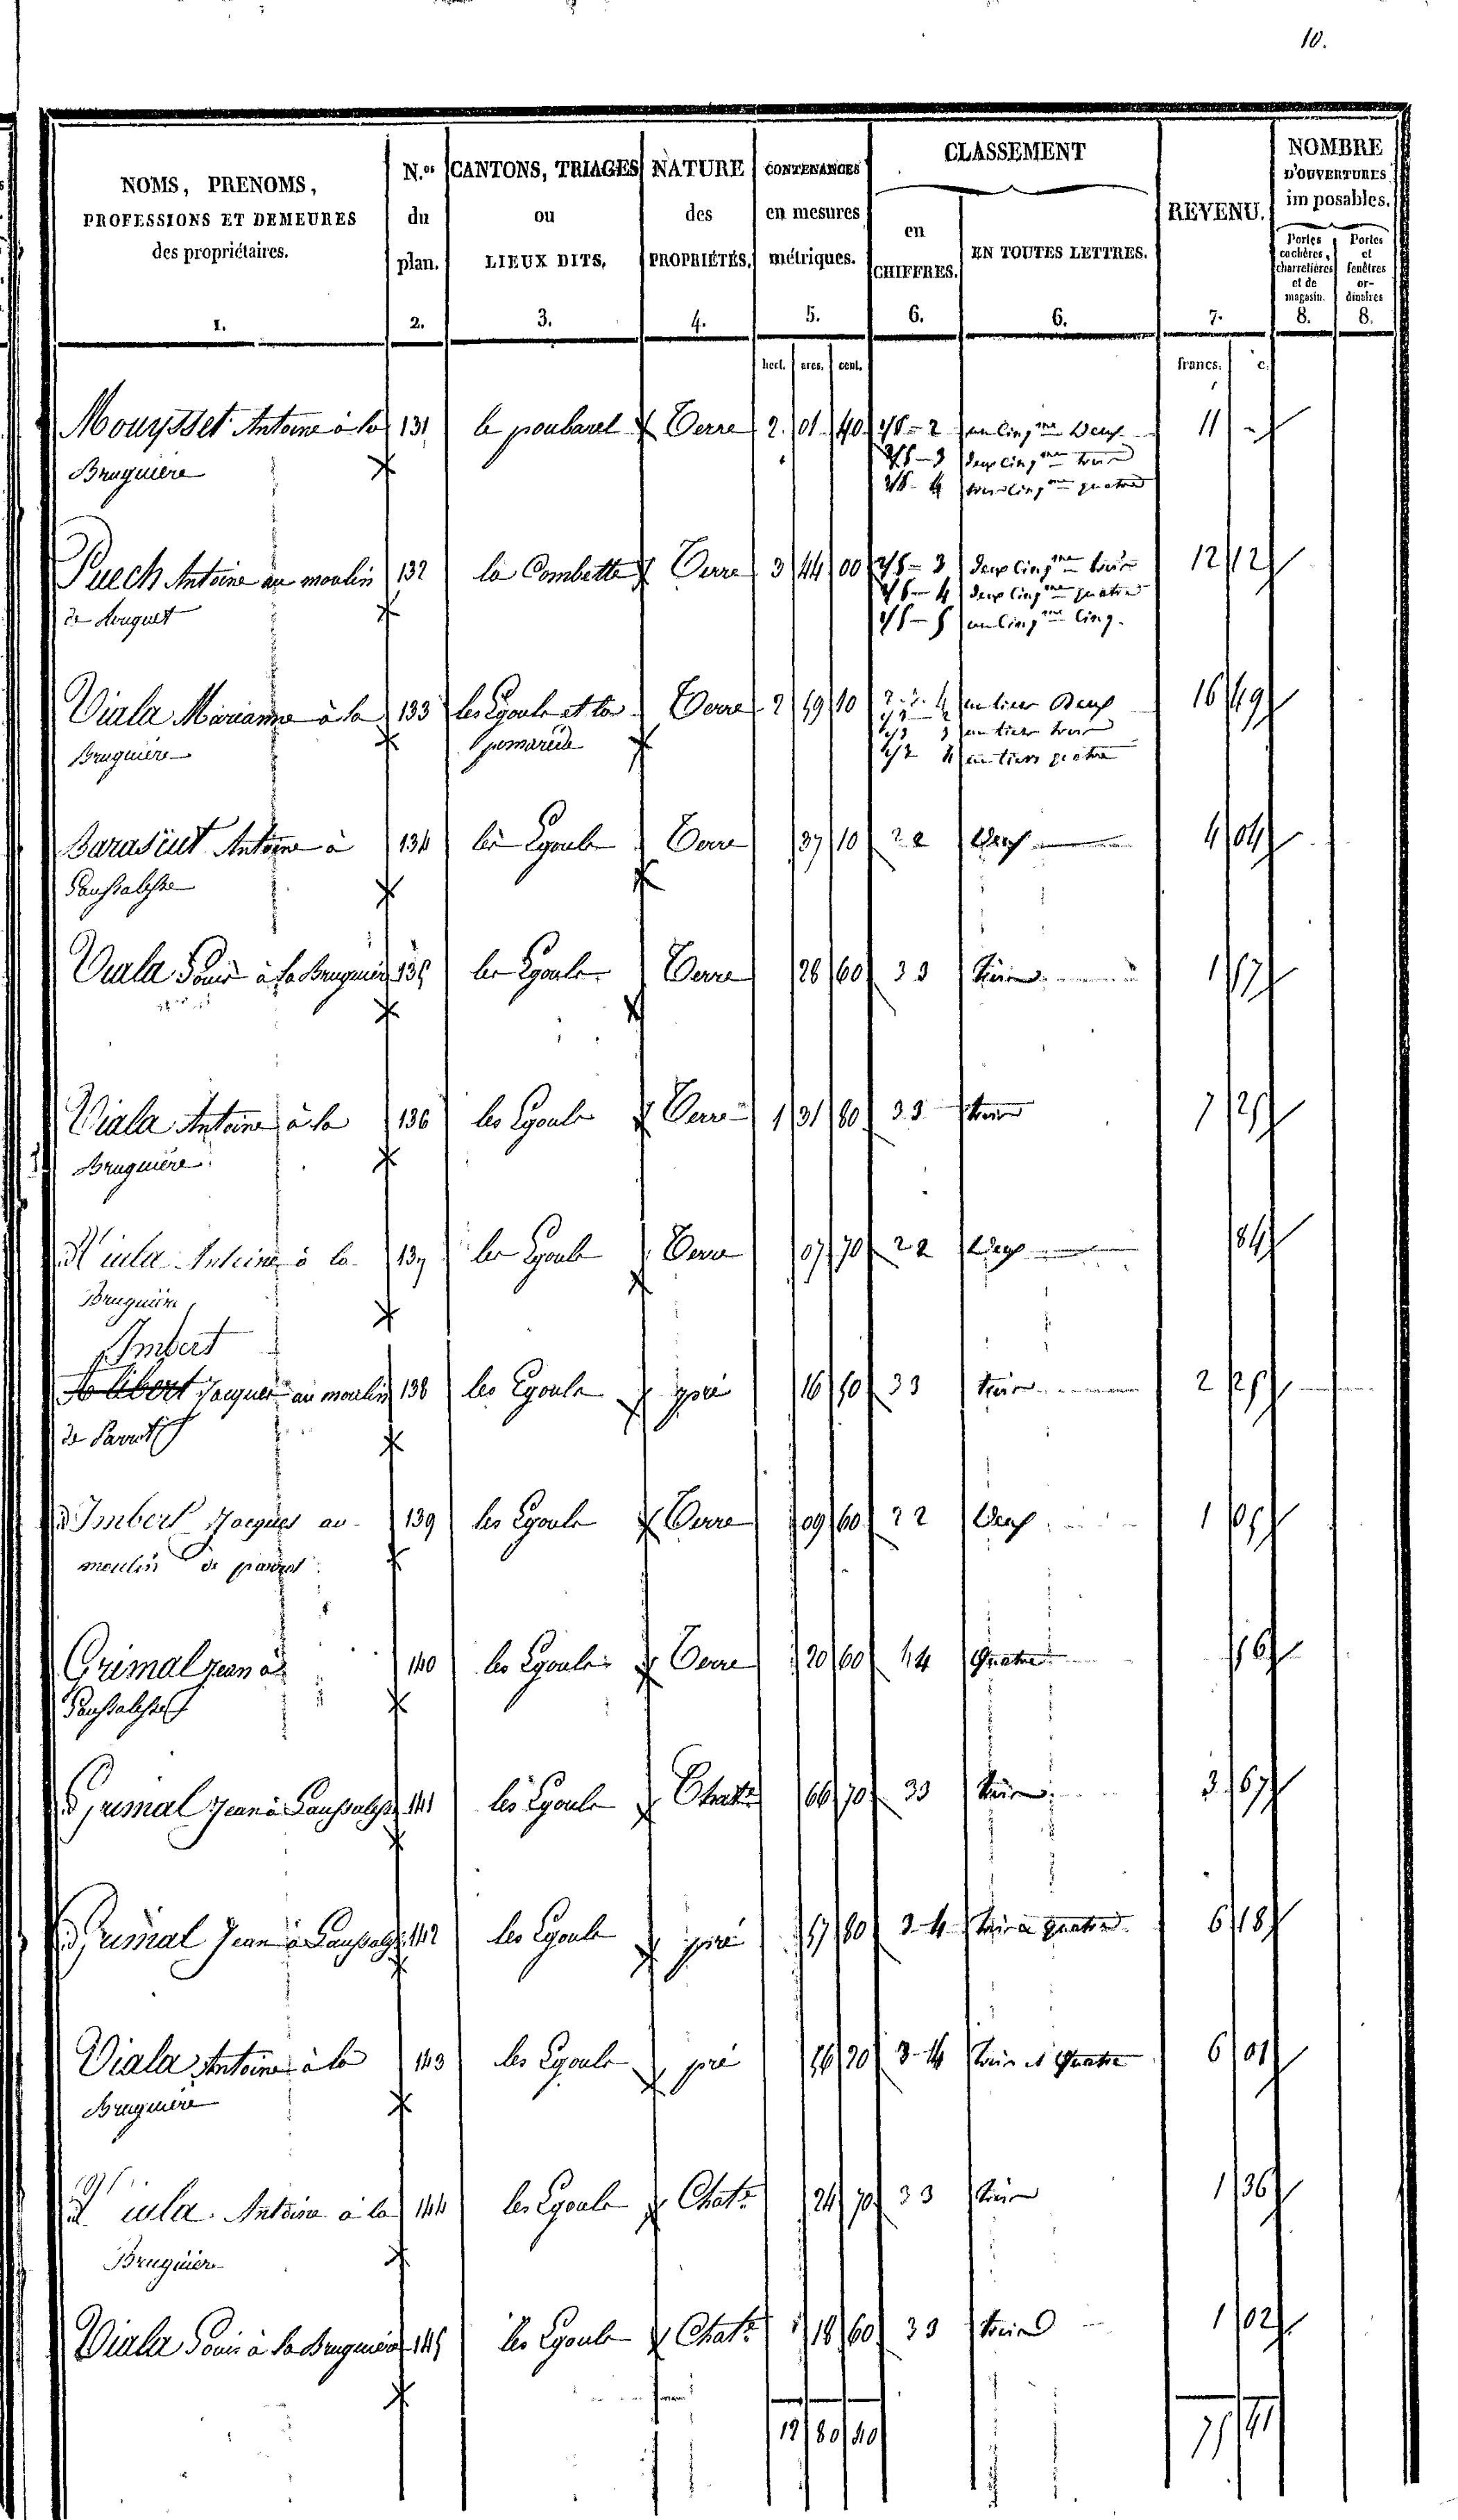 10.
NOMS, PRENOMS, PROFESSIONS ET DEMEURES des propriétaires. 1.
N.os du plan. 2.
CANTONS, TRIAGES ou LIEUX DITS, 3.
NATURE des PROPRIÉTÉS. 4.
CONTENANCES en mesures métriques. 5.
CLASSEMENT
en CHIFFRES. 6.
EN TOUTES LETTRES. 6.
REVENU. 7.
NOMBRE D'OUVERTURES imposables.
Portes cochères, charretières et de magasin. 8.
Portes et fenêtres ordinaires 8.
hect. ares. cent. francs. c.
Mouysset Antoine à la 131 le poubarel Terre 2 01 40 1/5 - 2 un cinq.me Deux 11 -
2/5 - 3 deux cinq.me trois
Bruguiere 2/5 - 4 cinq.me quatre
Puech Antoine au moulin 132 la Combette Terre 3 44 00 2/5 - 3 deux cinq.me trois 12 12
2/5 - 4 deux cinq.me quatre
de 1/5 - 5 un cinq.me cinq.
Viala Marianne à la 133 les Egouls et la Terre 2 49 10 2. 3. 4 un tiers Deux 16 49
pomarede 3 un tiers trois
Bruguiere 4 un tiers quatre
Antoine à 134 les Egouls Terre 37 10 2 2 Deux 4 04
Viala Louis à la Bruguiere 135 les Egouls Terre 28 60 3 3 trois 1 57
Viala Antoine à la 136 les Egouls Terre 1 31 80 3 3 trois 7 25
Bruguiere
Viala Antoine à la 137 les Egouls Terre 07 70 2 2 Deux 84
Bruguiere
Imbert
Jacques au moulin 138 les Egouls pré 16 50 3 3 trois 2 25
de
Imbert Jacques au 139 les Egouls Terre 09 60 2 2 Deux 1 05
moulin de
Grimal Jean à 140 les Egouls Terre 20 60 4 4 Quatre 56
Grimal Jean à 141 les Egouls Chatz 66 70 3 3 trois 3 67
Grimal Jean à 142 les Egouls pré 57 80 3 - 4 trois a quatre 6 18
Viala Antoine à la 143 les Egouls pré 56 20 3 - 4 trois et Quatre 6 01
Bruguiere
Viala Antoine à la 144 les Egouls Chatz 24 70 3 3 trois 1 36
Bruguiere
Viala Louis à la Bruguiere 145 les Egouls Chatz 18 60 3 3 trois 1 02
12 80 40 75 41